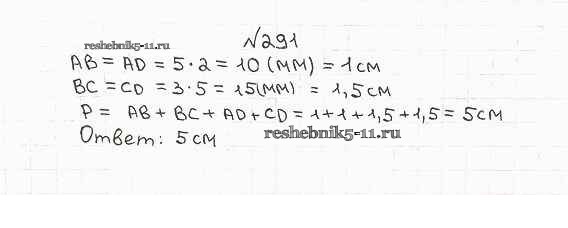 №291
reshebnik5-11.ru
AB = AD = 5 · 2 = 10 (мм) = 1 см
BC = CD = 3 · 5 = 15(мм) = 1,5 см
P = AB + BC + AD + CD = 1 + 1 + 1,5 + 1,5 = 5 см
Ответ: 5 см
reshebnik5-11.ru